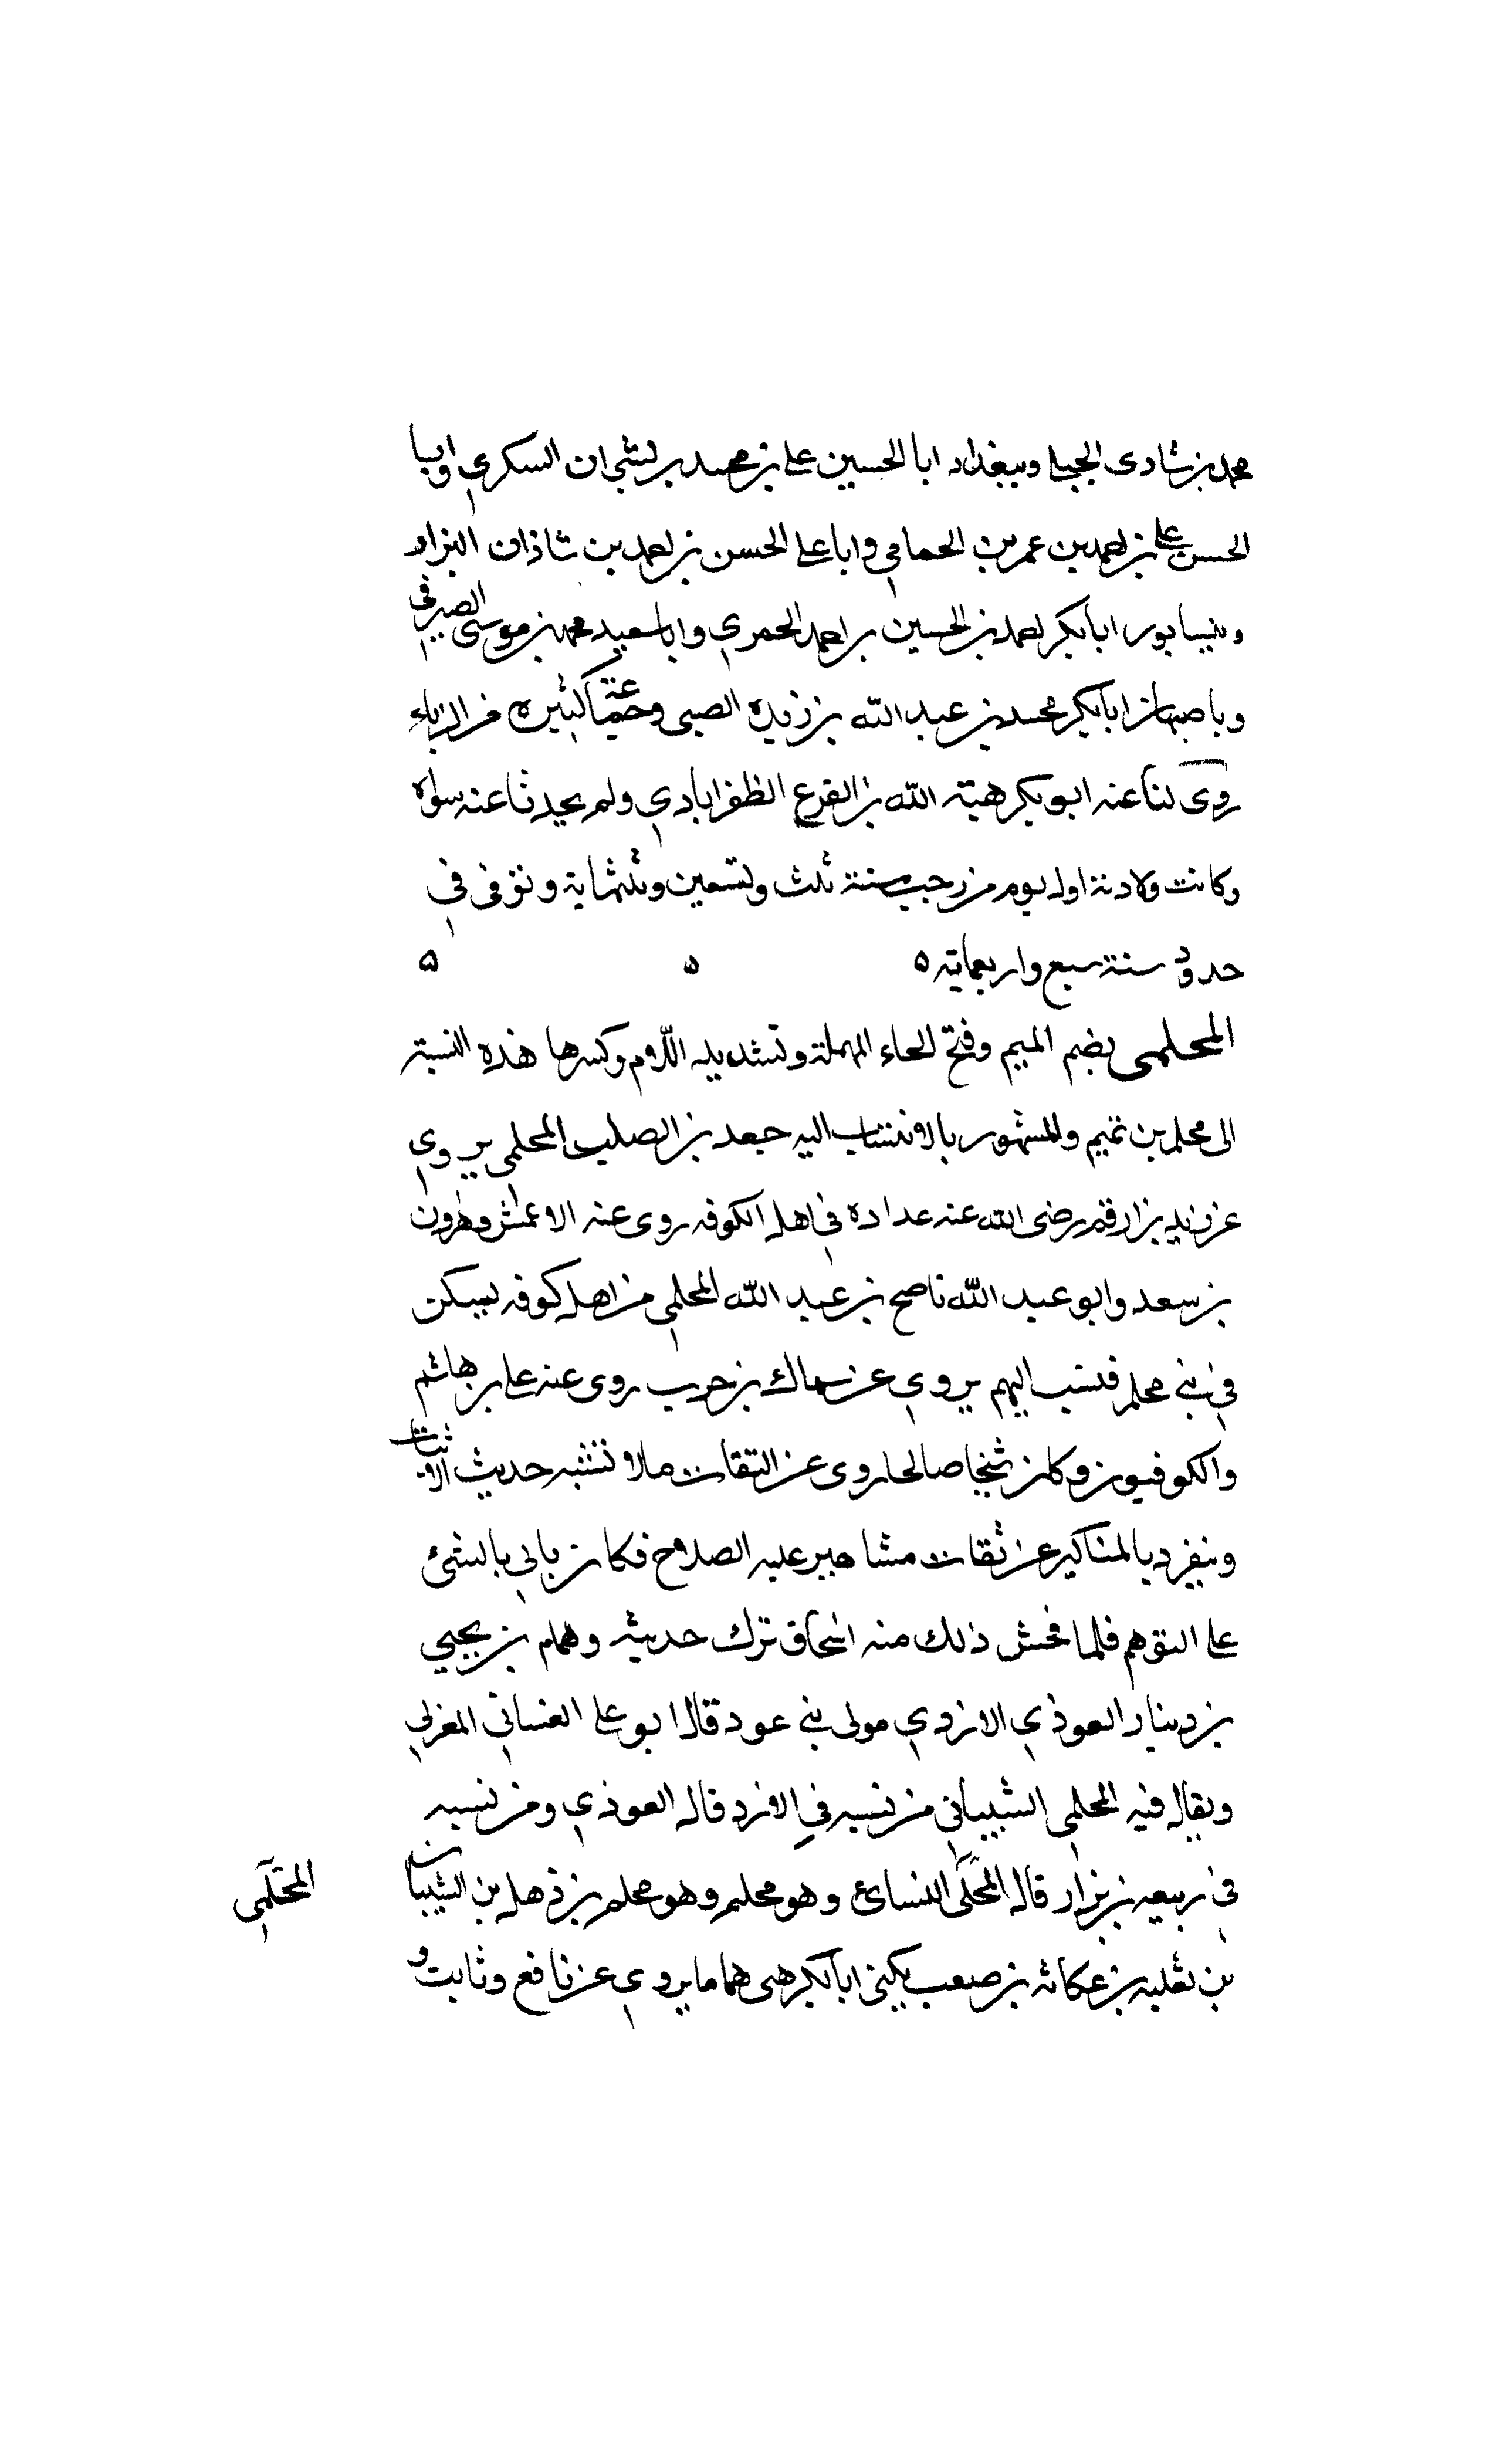 محمد بن شادى الجبلى وببغداد ابا الحسين على بن محمد بن بشران السكرى وابا
الحسن على بن احمد بن عمر بن الحمامي وابا على الحسن بن احمد بن شاذان البزار
وبنيسابور ابا بكر احمد بن الحسين بن احمد الحمري وابا سعيد محمد بن موسى الصيرفي
وباصبهان ابا بكر محمد بن عبد الله بن زيده الضبي وجماعة كثيرة من الغرباء
روى لنا عنه ابو بكر هبة الله بن الفرج الظفرابادي ولم يحدثنا عنه سواه
وكانت ولادته اول يوم من رجب سنة ثلث وتسعين وثلثماية وتوفى في
حدود سنة سبع واربعماية ه ه ه
المحلمى بضم الميم وفتح الحاء المهملة وتشديد اللام وكسرها هذه النسبة
الى محلم بن تميم والمشهور بالانتساب اليه جعد بن الصلب المحلمي يروي
عن زيد بن ارقم رضى الله عنه عداده في اهل الكوفه روى عنه الاعمش وهرون
بن سعد وابو عبد الله ناصح بن عبد الله المحلمي من اهل كوفه يسكن
في بني محلم فنسب اليهم يروي عن سماك بن حرب روى عنه على بن هاشم
والكوفيون وكان شيخا صالحا روى عن الثقات ما لا تشبه حديث الاثبات
وينفرد بالمناكير عن ثقات مشاهير عليه الصلاح فكان ياتي بالشئ
على التوهم فلما فحش ذلك منه استحاق ترك حديثه وهمام بن يحيي
بن دينار العوذي الازدي مولى بني عود قال ابو على الغساني المغربي
ويقال فيه المحلمي الشيباني من نسبه في الازد قال العوذي ومن نسبه
في ربيعه بن نزار قال المحلمي النسائي وهو محلم وهو محلم بن ذهل بن الشيبان
المحلمي
بن ثعلبه بن عكابة بن صعب يكنى ابا بكر هى همام يروي عن نافع وثابت و